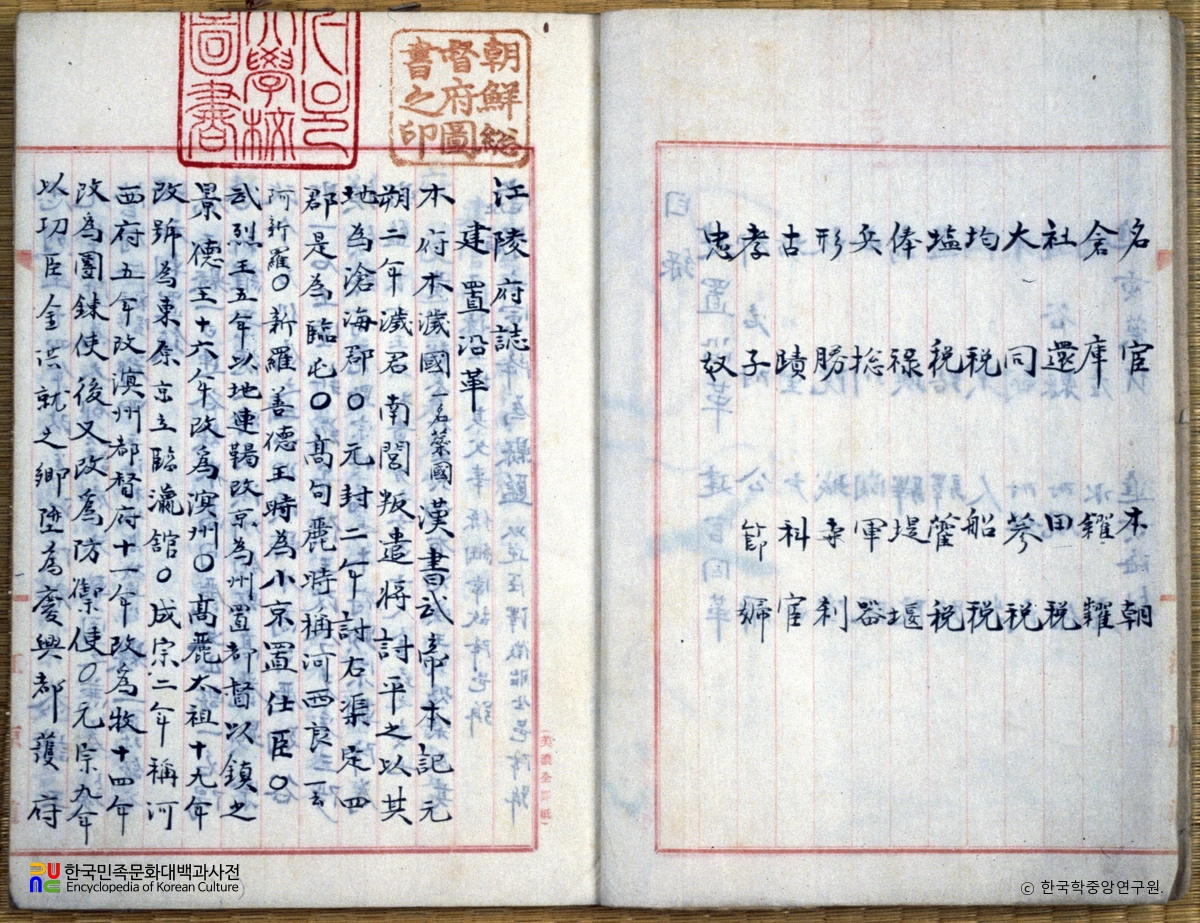 名宦 本朝
倉庫 糴糶
社還 田税
大同 蔘税
均税 船税
塩税 藿税
俸禄 堤堰
兵摠 軍器
形勝 寺刹
古蹟 科宦
孝子 節婦
忠奴
朝鮮総督府圖書之印
大學校圖書
江陵府誌
建置沿革
本府本濊國一名蘂國漢書武帝本記元
朔二年濊君南閭叛遣將討平之以其
地為滄海郡○元封二年討右渠定四
郡是為臨屯○高句麗時稱河西良一云
阿新羅○新羅善德王時為小京置仕臣○
武烈王五年以地連鞨改京為州置都督以鎮之
景德王十六年改為溟州○高麗太祖十九年
改號為東原京立臨瀛舘○成宗二年稱河
西府五年改溟州都督府十一年改為牧十四年
改為團鍊使後又改為防禦使○元宗九年
以功臣金洪就之鄉陞為慶興都護府
한국민족문화대백과사전
Encyclopedia of Korean Culture
© 한국학중앙연구원